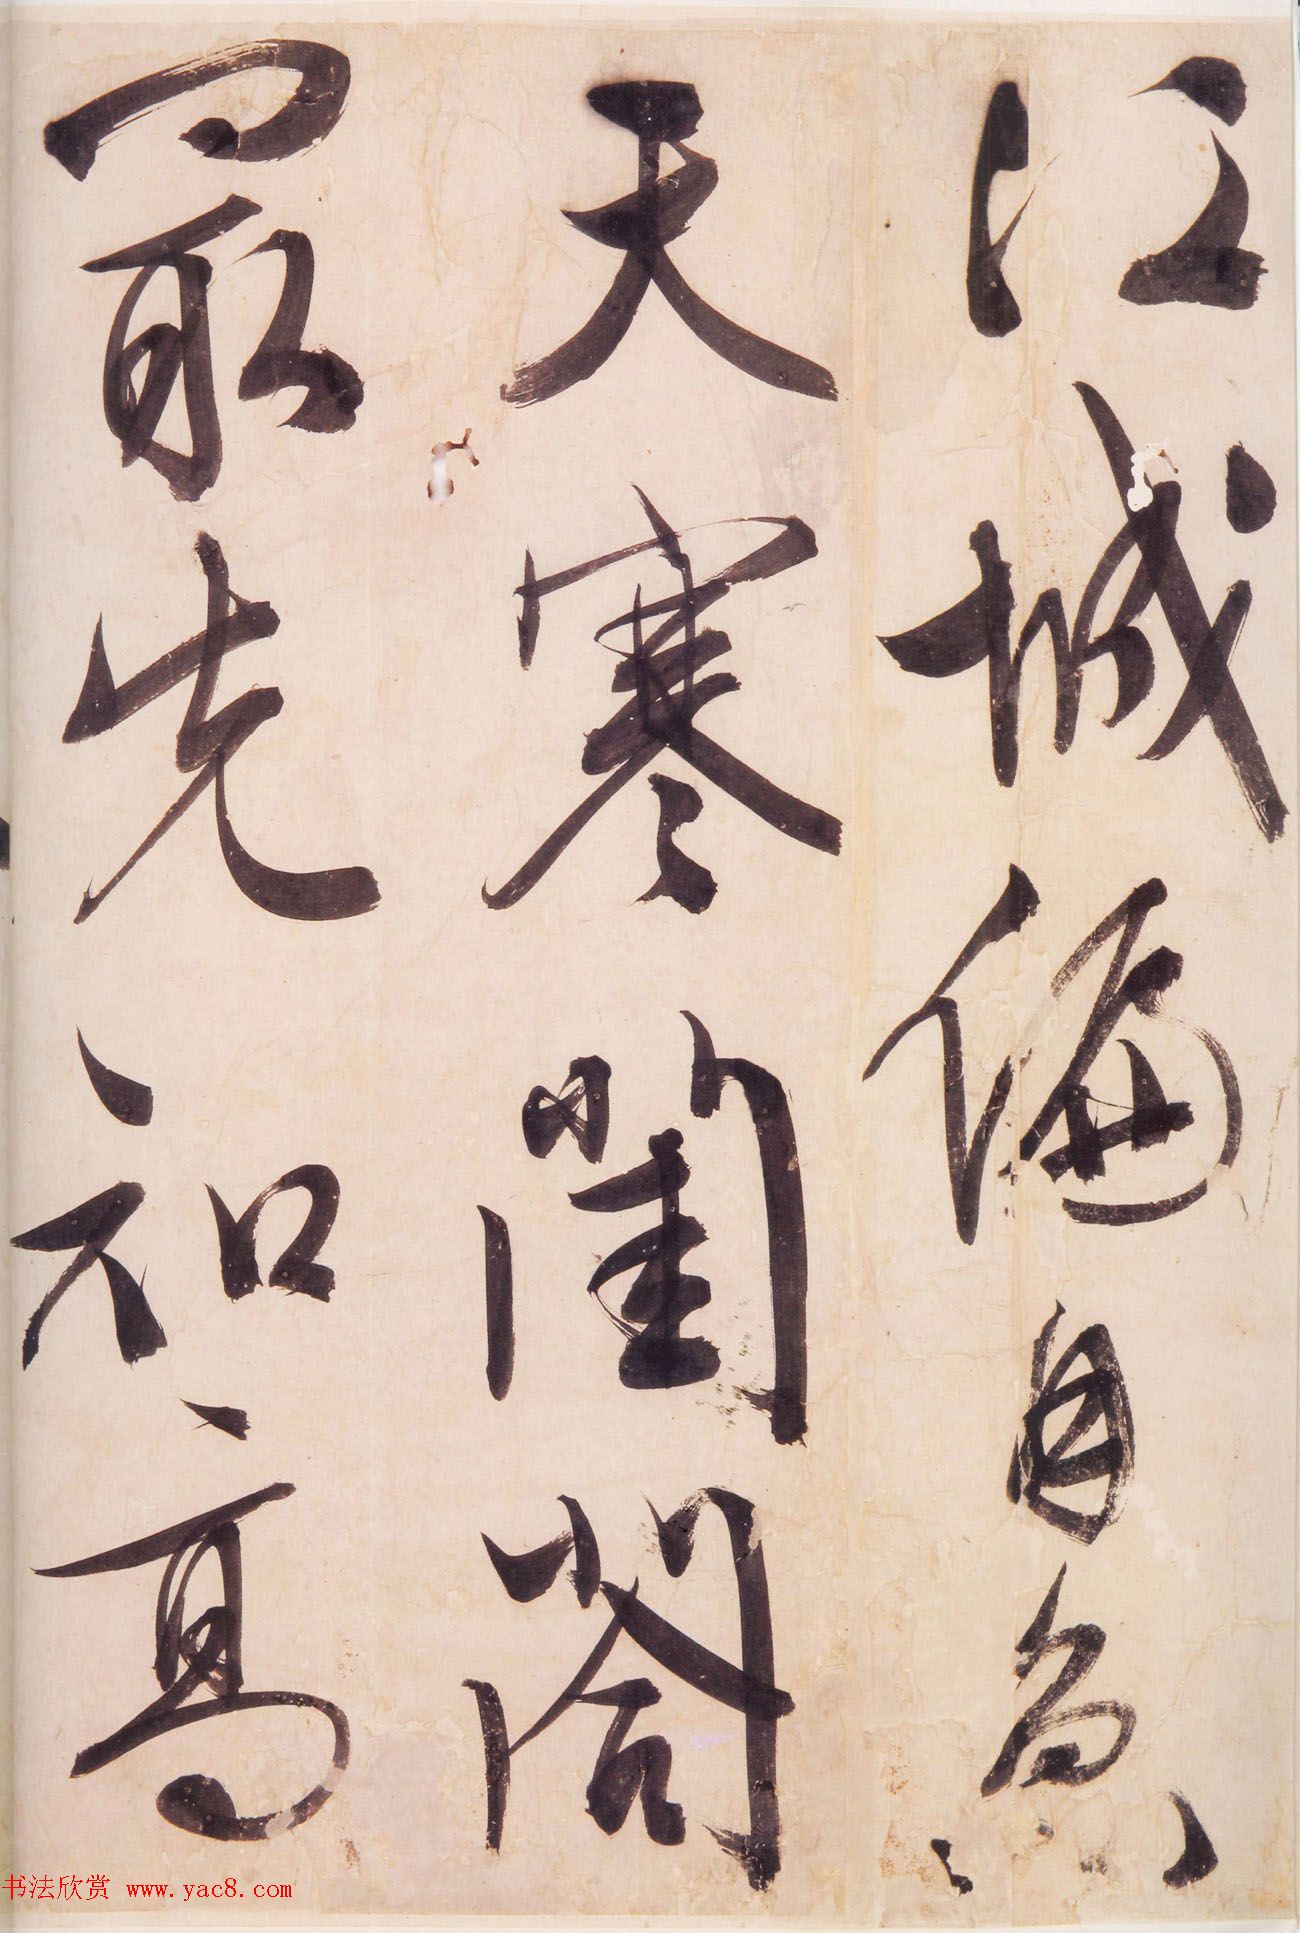 江城偏自負
天寒閨閤
最先知高
书法欣赏 www.yac8.com